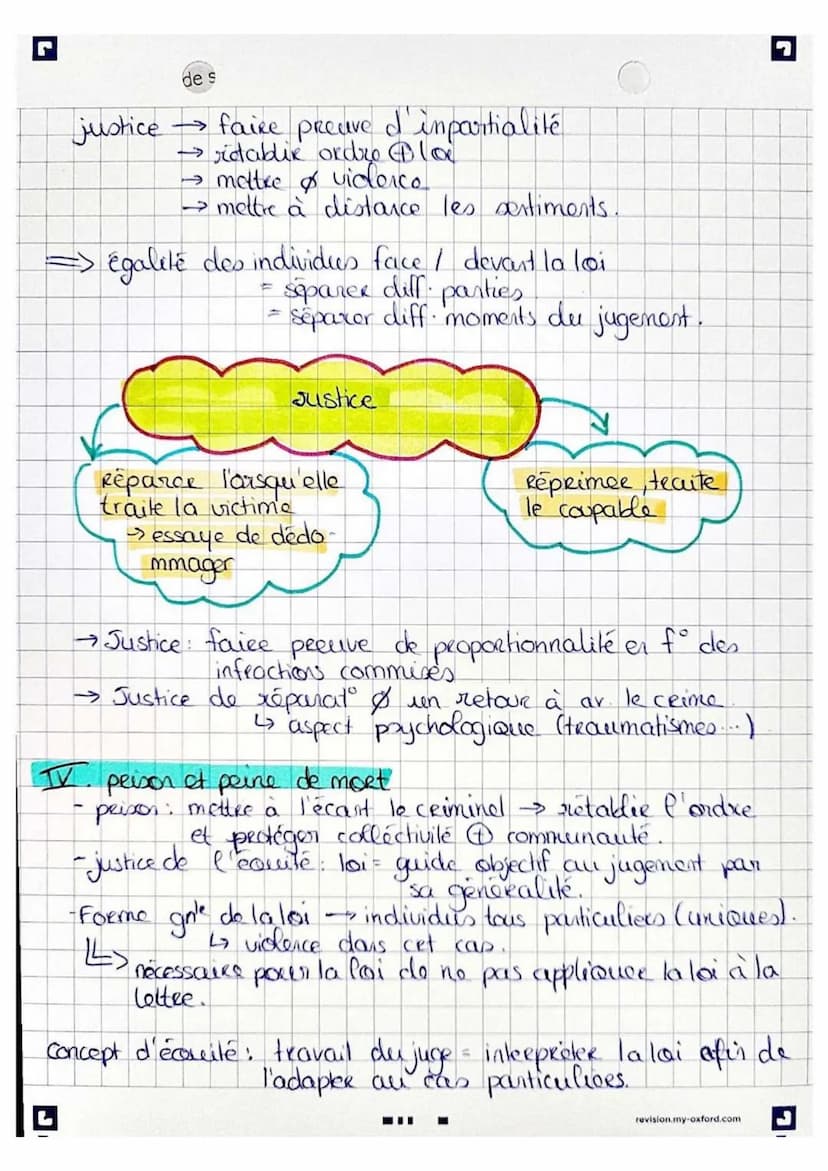 de s
justice → faire preuve d'impartialité
→ rétablir ordre ⊕ loi
→ mettre ø violence
→ mettre à distance les sentiments.
=> égalité des individus face / devant la loi
= séparer diff. parties
= séparer diff. moments du jugement.
Justice
Répare lorsqu'elle
traite la victime
→ essaye de dédo-
mmager
Réprimee, traite
le coupable
→ Justice : faire preuve de proportionnalité en f° des
infractions commises
→ Justice de réparat° Ø un retour à av. le crime
↳ aspect psychologique (traumatismes...)
IV. prison et peine de mort
- prison : mettre à l'écart le criminel → rétablir l'ordre
et protéger collectivité ⊕ communauté.
- justice de l'équité : loi = guide objectif au jugement par
sa généralité.
- Forme gnle de la loi → individus tous particuliers (uniques).
↳ violence dans cet cas.
↳> nécessaire pour la loi de ne pas appliquer la loi à la
lettre.
Concept d'équité : travail du juge = interpréter la loi afin de
l'adapter au cas particulières.
revision.my-oxford.com